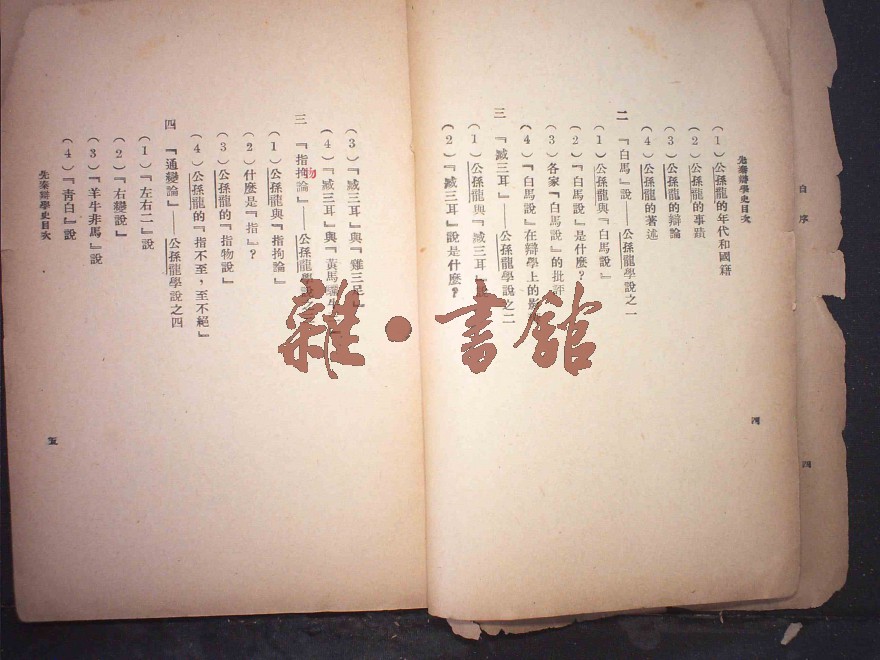 自序
四
先秦辯學史目次
(1)公孫龍的年代和國籍
(2)公孫龍的事蹟
(3)公孫龍的辯論
(4)公孫龍的著述
二 『白馬』說——公孫龍學說之一
(1)公孫龍與『白馬說』
(2)『白馬說』是什麼?
(3)各家『白馬說』的批評
(4)『白馬說』在辯學上的影
三 『臧三耳』——公孫龍學說之二
(1)公孫龍與『臧三耳』說
(2)『臧三耳』說是什麼?
四
(3)『臧三耳』與『雞三足』
(4)『臧三耳』與『黃馬驪牛
三 『指拘論』——公孫龍學說之三
物
(1)公孫龍與『指拘論』
(2)什麼是『指』?
(3)公孫龍的『指物說』
(4)公孫龍的『指不至,至不絕』
四 『通變論』——公孫龍學說之四
(1)『左右二』說
(2)『右變說』
(3)『羊牛非馬』說
(4)『青白』說
先秦辯學史目次
五
雜·書館